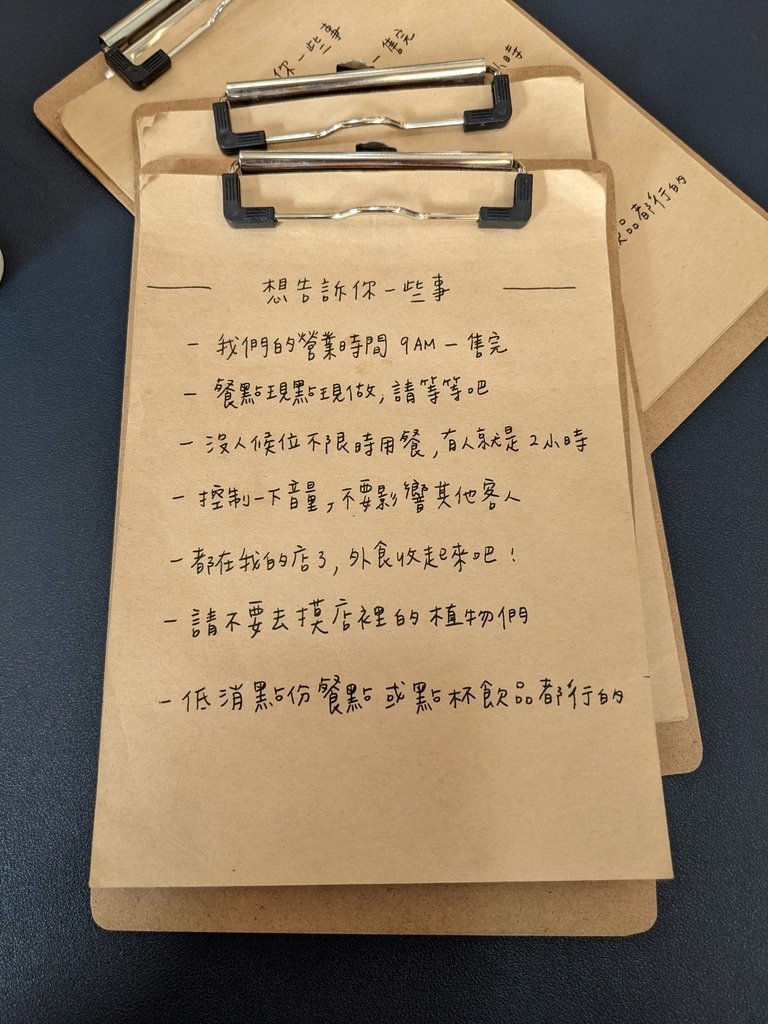 你一些事
一售完
小時
飲品都行的
想告訴你一些事
- 我們的營業時間 9AM - 售完
- 餐點現點現做,請等等吧
- 沒人候位不限時用餐,有人就是2小時
- 控制一下音量,不要影響其他客人
- 都在我的店了,外食收起來吧!
- 請不要去摸店裡的植物們
- 低消點份餐點或點杯飲品都行的